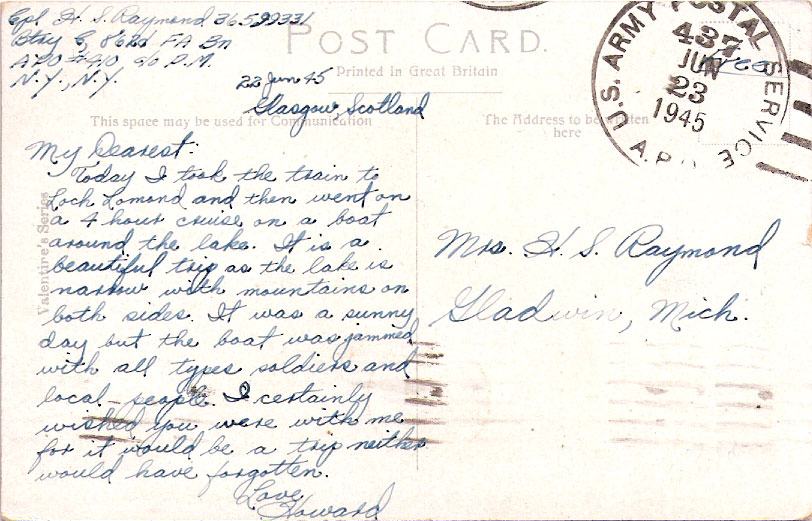 Cpl H. S. Raymond 36599331
Btry C, 862d FA Bn
APO #410 % P.M.
N.Y., N.Y.
POST CARD.
Printed in Great Britain
22 Jun 45
Glasgow, Scotland
This space may be used for Communication
The Address to be written
here
U.S. ARMY POSTAL SERVICE
A.P.
437
JUN
23
1945
Free
Valentine's Series
My Dearest:
Today I took the train to
Loch Lomond and then went on
a 4 hour cruise on a boat
around the lake. It is a
beautiful trip as the lake is
narrow with mountains on
both sides. It was a sunny
day but the boat was jammed
with all types soldiers and
local people. I certainly
wished you were with me
for it would be a trip neither
would have forgotten.
Love
Howard
Mrs. H. S. Raymond
Gladwin, Mich.